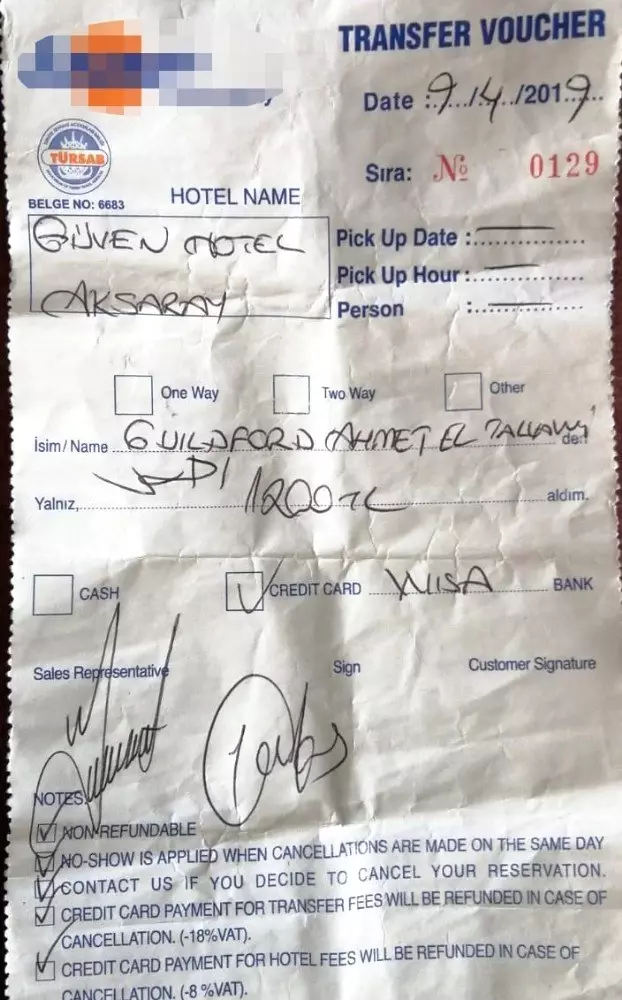 TRANSFER VOUCHER
Date : 9/4/2019
TÜRSAB
Sıra: № 0129
BELGE NO: 6683
HOTEL NAME
GÜVEN HOTEL
AKSARAY
Pick Up Date :
Pick Up Hour :
Person :
One Way Two Way Other
İsim / Name GUILDFORD AHMET EL den
Yalnız, 1200 TL aldım.
CASH CREDIT CARD VISA BANK
Sales Representative Sign Customer Signature
NOTES
NON REFUNDABLE
NO-SHOW IS APPLIED WHEN CANCELLATIONS ARE MADE ON THE SAME DAY
CONTACT US IF YOU DECIDE TO CANCEL YOUR RESERVATION.
CREDIT CARD PAYMENT FOR TRANSFER FEES WILL BE REFUNDED IN CASE OF
CANCELLATION. (-18%VAT).
CREDIT CARD PAYMENT FOR HOTEL FEES WILL BE REFUNDED IN CASE OF
CANCELLATION. (-8 %VAT).